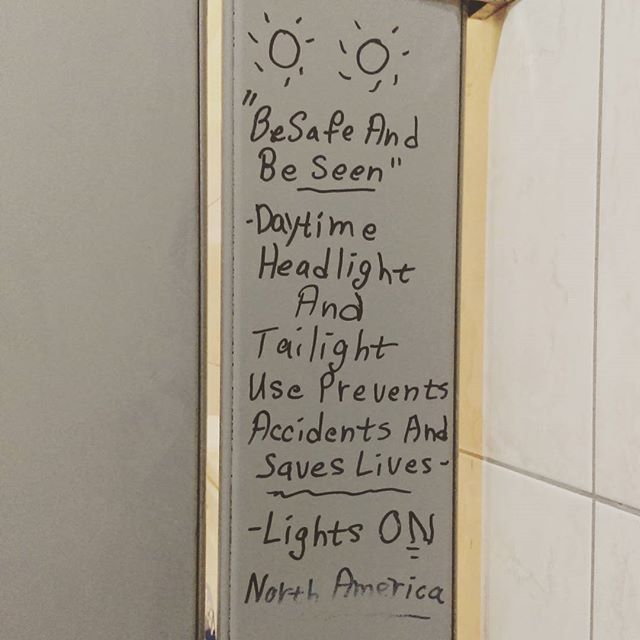 "BeSafe And
Be Seen"
-Daytime
Headlight
And
Tailight
Use Prevents
Accidents And
Saves Lives-
-Lights ON
North America